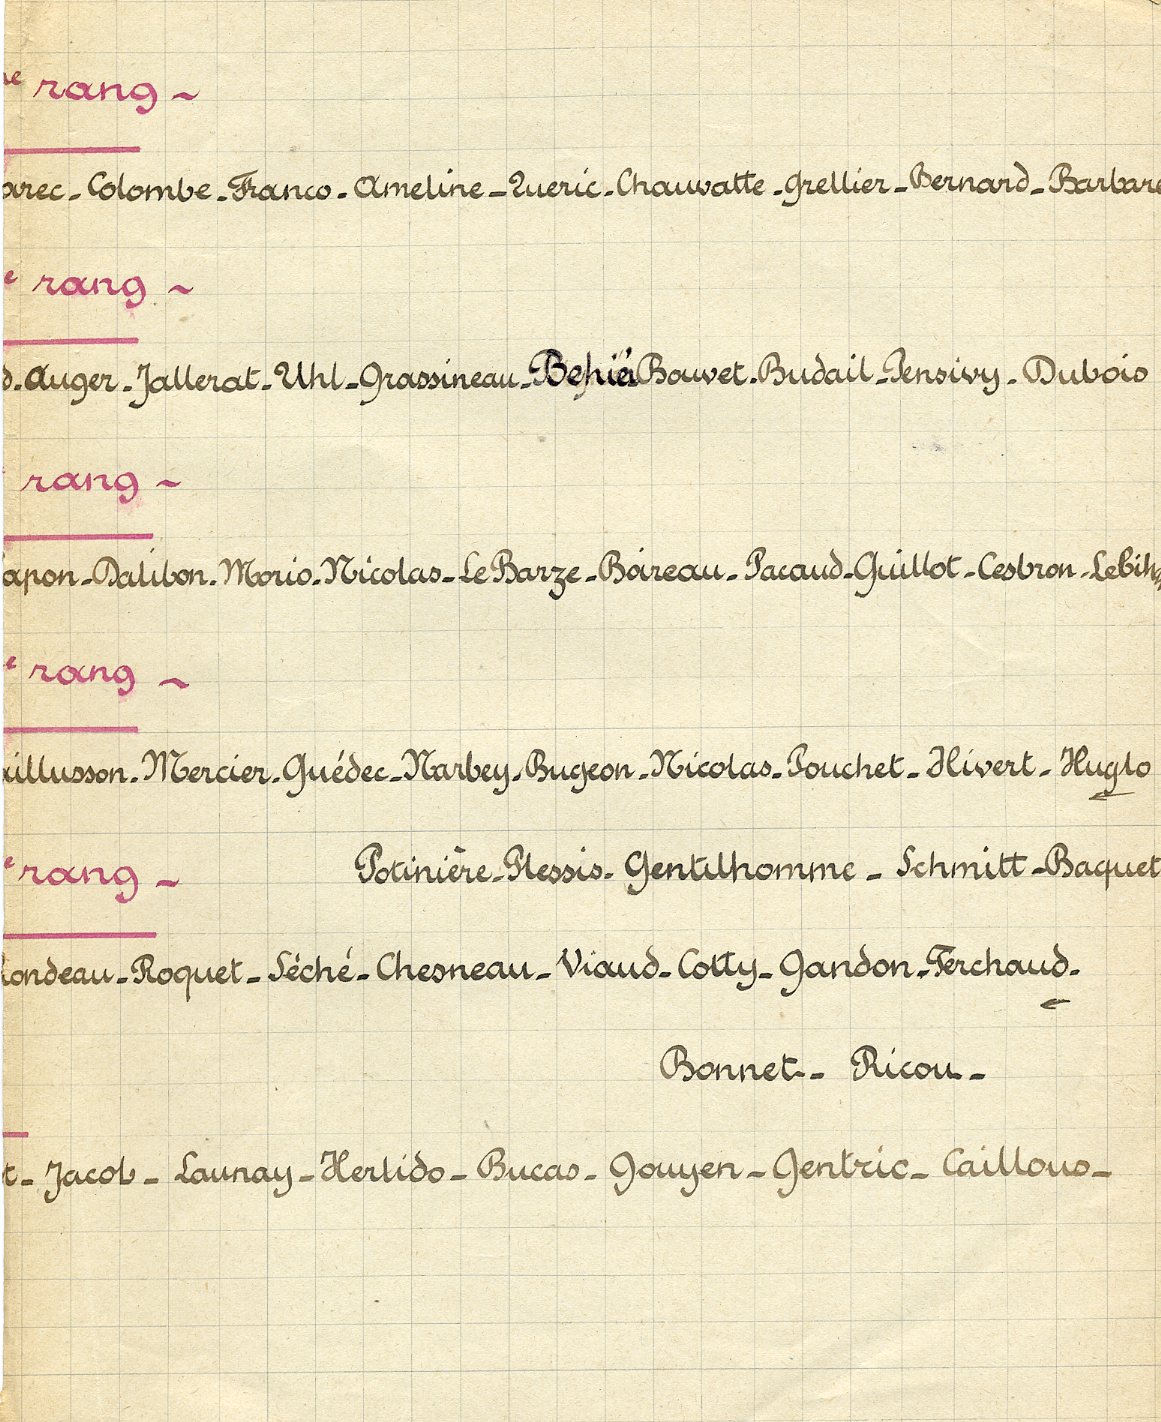 me rang ~
arec - Colombe - Franco - Ameline - Queric - Chauvatte - Grellier - Bernard - Barbare
e rang ~
d - Auger - Jallerat - Uhl - Grassineau - Bouvet - Budail - Pensivy - Dubois
rang ~
apon - Dalibon - Morio - Nicolas - Le Barze - Boireau - Pacaud - Guillot - Cesbron - Lebih
e rang ~
aillusson - Mercier - Guédec - Narbey - Bugeon - Nicolas - Pouchet - Hivert - Huglo
Potinière - Plessis - Gentilhomme - Schmitt - Baquet
e rang ~
Rondeau - Roquet - Séché - Chesneau - Viaud - Cotty - Gandon - Ferchaud -
Bonnet - Ricou -
t - Jacob - Launay - Herlido - Bucas - Gouyen - Gentric - Caillous -